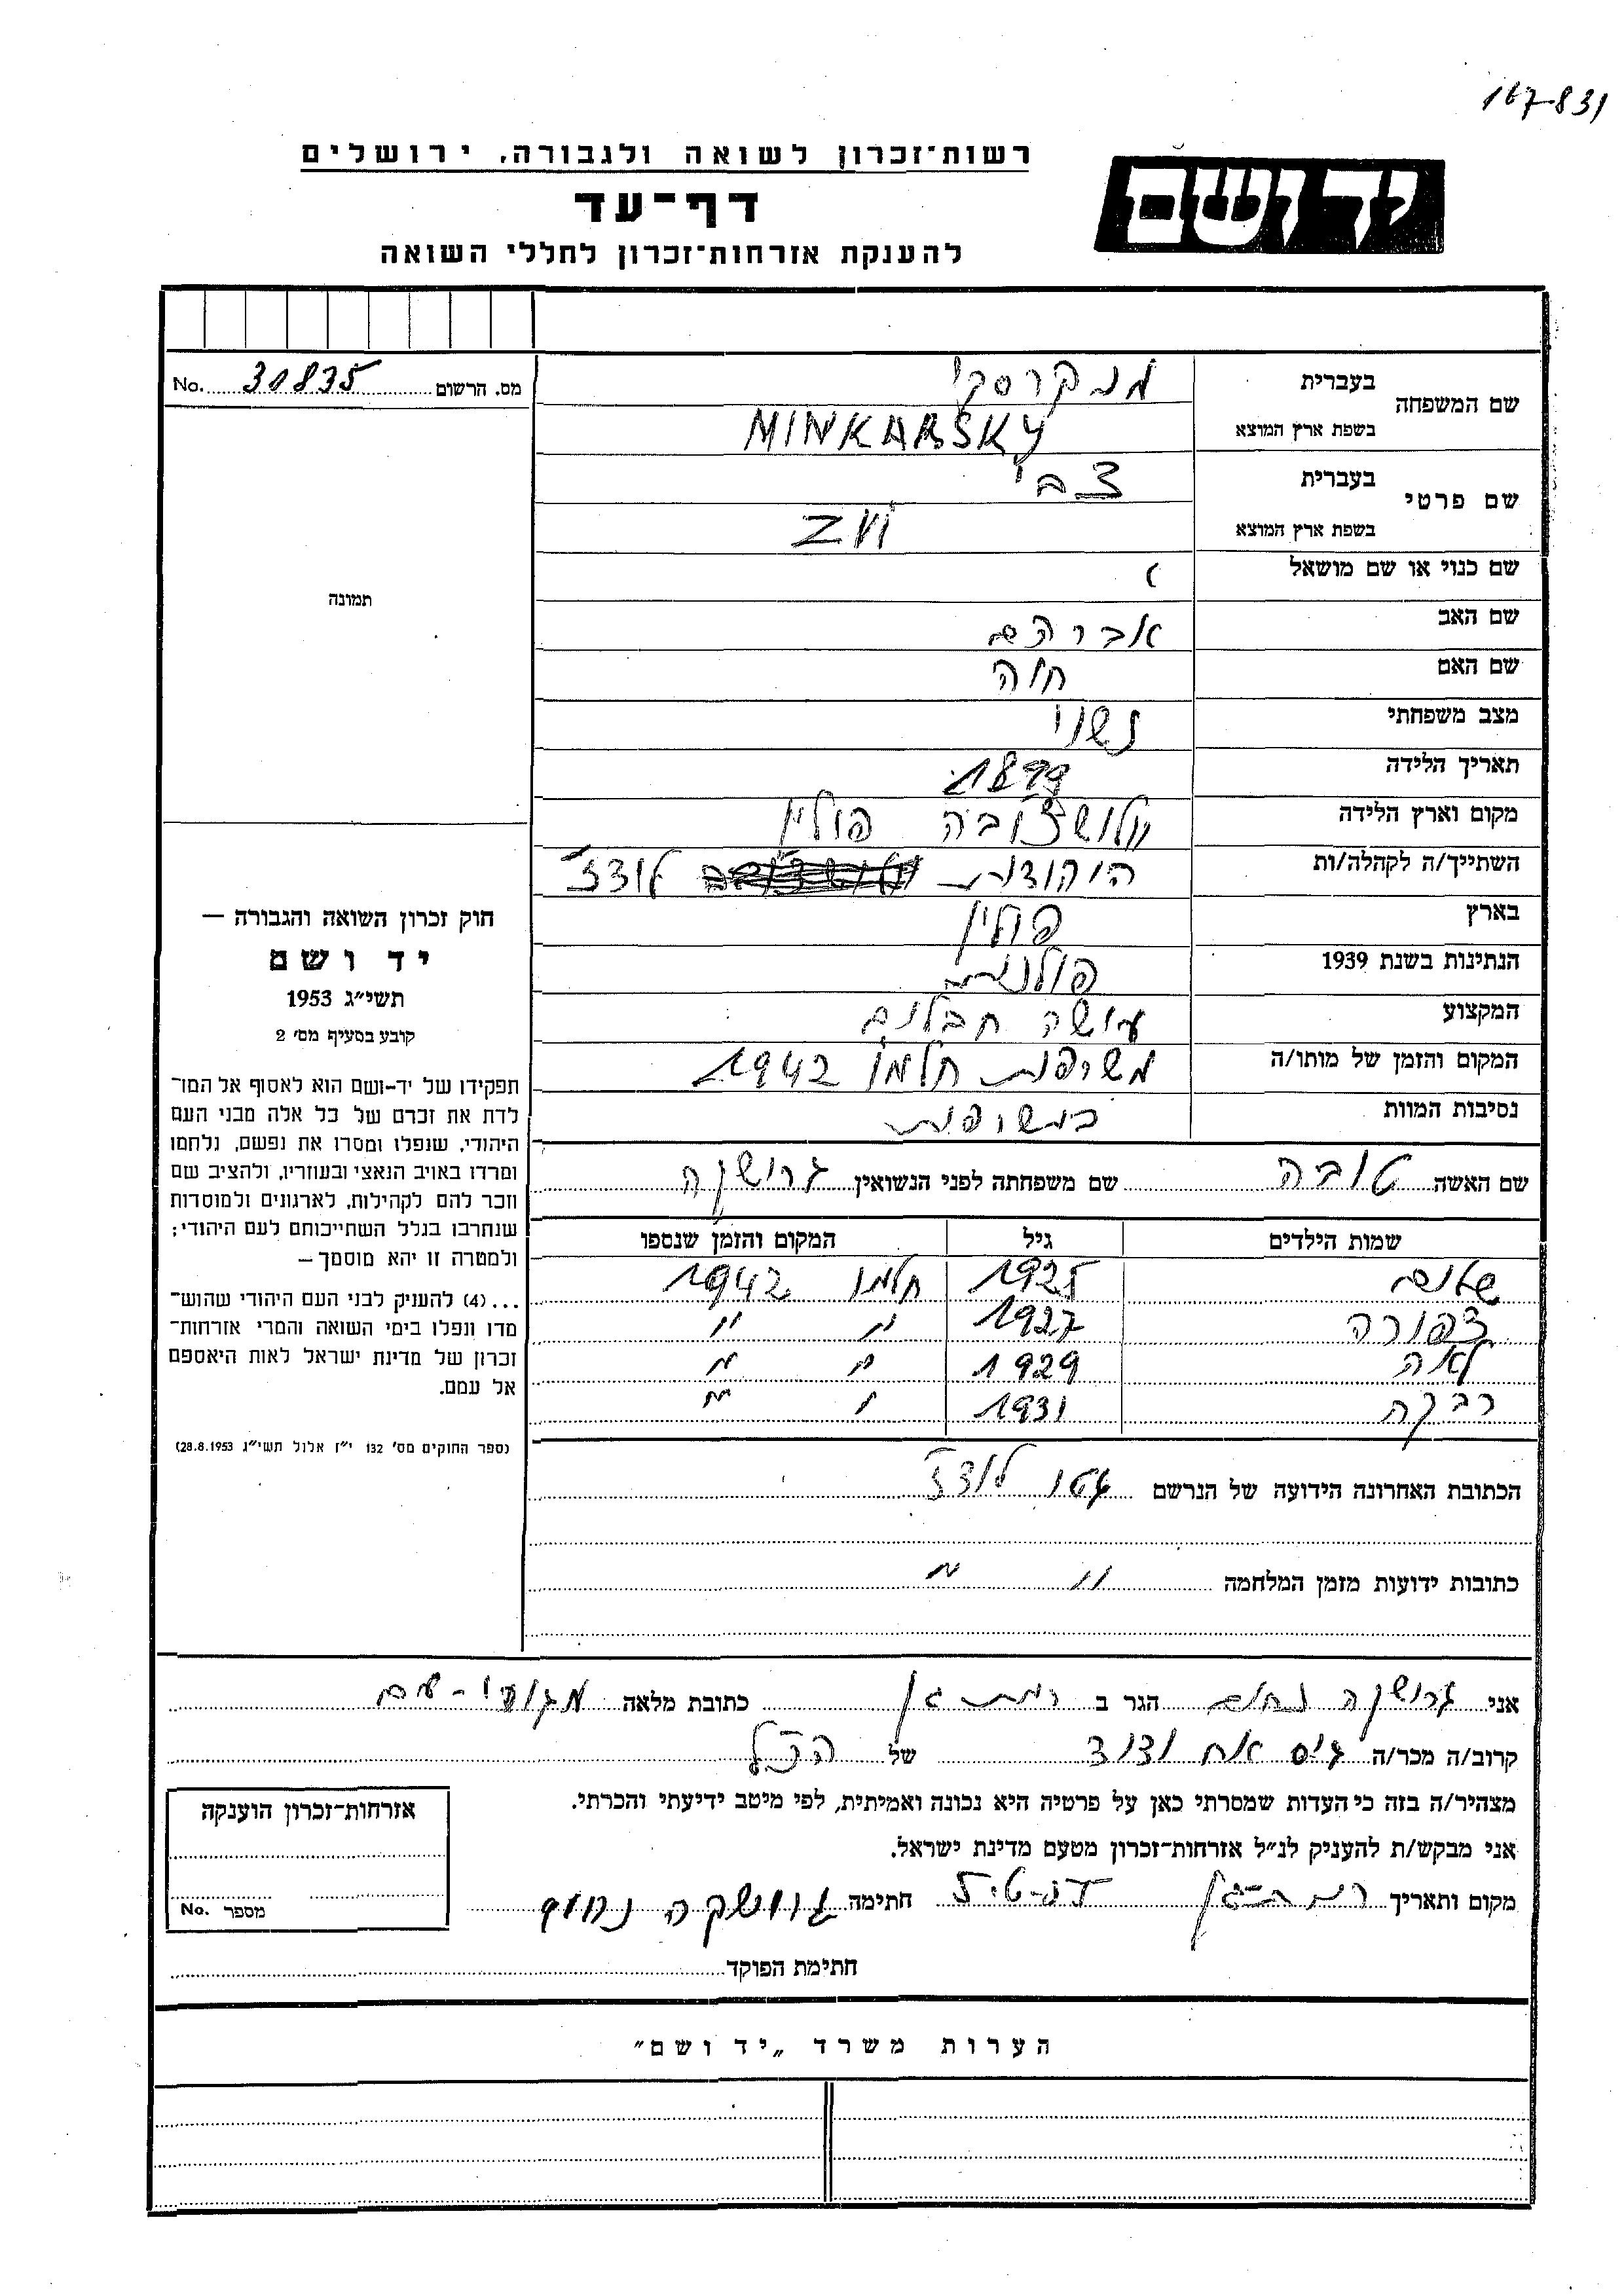 167-831
רשות־זכרון לשואה ולגבורה, ירושלים
יד ושם
דף־עד
להענקת אזרחות־זכרון לחללי השואה
מס. הרשום 31835 No.
שם המשפחה
בעברית מנקרסקי
בשפת ארץ המוצא MINKARSKY
שם פרטי
בעברית צבי
בשפת ארץ המוצא ZVI
שם כנוי או שם מושאל
שם האב אברהם
שם האם חוה
מצב משפחתי נשוי
תאריך הלידה 1899
מקום וארץ הלידה ולושצ'ובה פולין
השתייך/ה לקהלה/ות היהודית לודז'
בארץ פולין
הנתינות בשנת 1939 פולנית
המקצוע עושה חבלים
המקום והזמן של מותו/ה משרפות חלמנו 1942
נסיבות המוות במשרפות
שם האשה טובה שם משפחתה לפני הנשואין גרושקה
שמות הילדים גיל המקום והזמן שנספו
שלום 1925 חלמנו 1942
צפורה 1927 " "
לאה 1929 " "
רבקה 1931 " "
הכתובת האחרונה הידועה של הנרשם גטו לודז'
כתובות ידועות מזמן המלחמה " "
תמונה
חוק זכרון השואה והגבורה —
יד ושם
תשי״ג 1953
קובע בסעיף מס׳ 2
תפקידו של יד-ושם הוא לאסוף אל המו־
לדת את זכרם של כל אלה מבני העם
היהודי, שנפלו ומסרו את נפשם, נלחמו
ומרדו באויב הנאצי ובעוזריו, ולהציב שם
וזכר להם לקהילות, לארגונים ולמוסדות
שנחרבו בגלל השתייכותם לעם היהודי;
ולמטרה זו יהא מוסמך –
...(4) להעניק לבני העם היהודי שהוש־
מדו ונפלו בימי השואה והמרי אזרחות־
זכרון של מדינת ישראל לאות היאספם
אל עמם.
(ספר החוקים מס׳ 132 י״ז אלול תשי״ג 28.8.1953)
אני גרושקה נחום הגר ב רמת גן כתובת מלאה
קרוב/ה מכר/ה גיס של הנ״ל
מצהיר/ה בזה כי העדות שמסרתי כאן על פרטיה היא נכונה ואמיתית, לפי מיטב ידיעתי והכרתי.
אני מבקש/ת להעניק לנ״ל אזרחות־זכרון מטעם מדינת ישראל.
מקום ותאריך רמת-גן חתימה גרושקה נחום
חתימת הפוקד
אזרחות־זכרון הוענקה
מספר No.
הערות משרד „יד ושם״